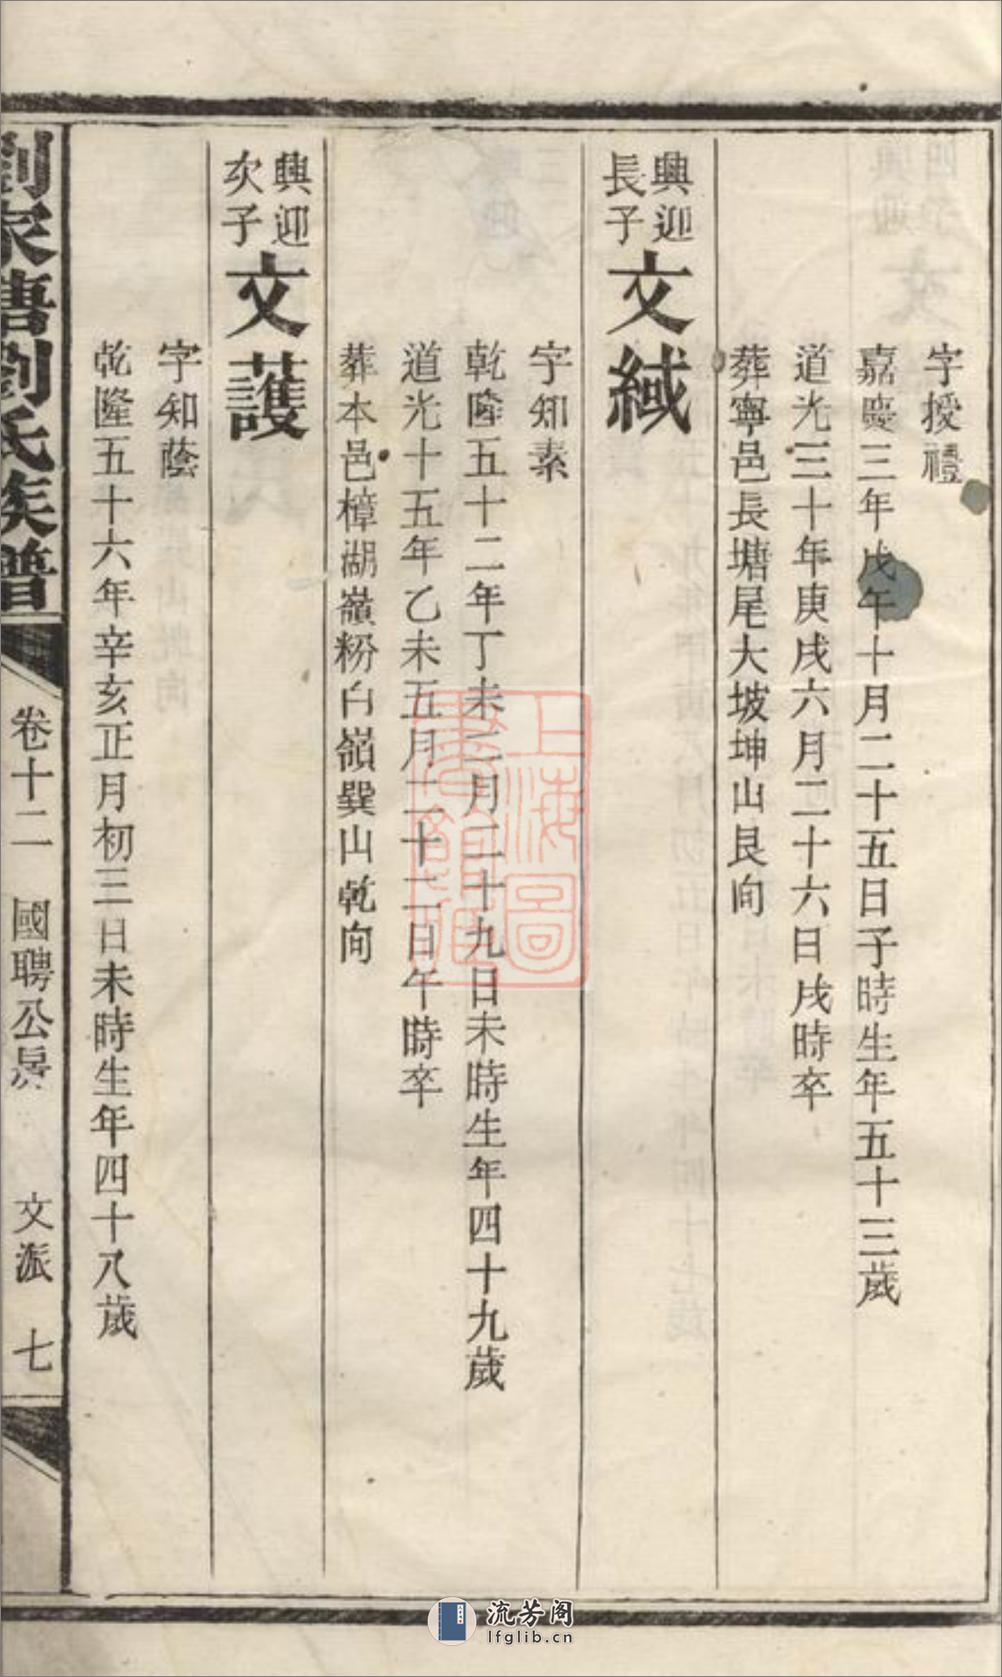 字授禮
嘉慶三年戊午十月二十五日子時生年五十三歲
道光三十年庚戌六月二十六日戌時卒
葬寧邑長塘尾大坡坤山艮向
興迎
長子
文緎
字知素
乾隆五十二年丁未三月二十九日未時生年四十九歲
道光十五年乙未五月二十二日午時卒
葬本邑樟湖嶺粉白嶺巽山乾向
興迎
次子
文護
字知蔭
乾隆五十六年辛亥正月初三日未時生年四十八歲
劉家塘劉氏族譜
卷十二 國聘公房 文派 七
上海圖書館藏
流芳阁
lfglib.cn